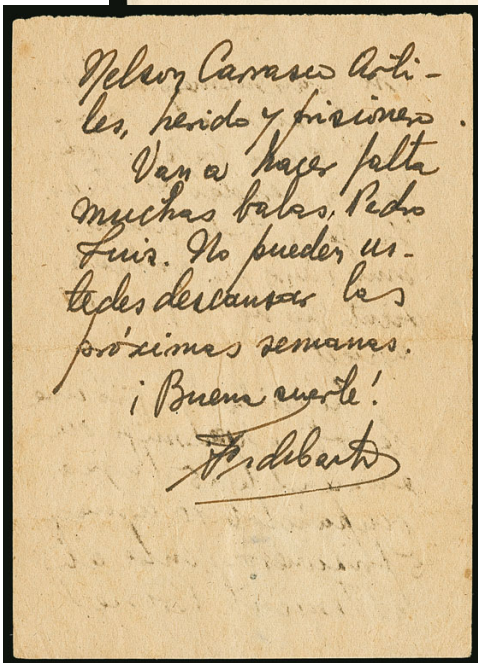 Nelson Carrasco Arti-
les, herido y prisionero.
Van a hacer falta
muchas balas, Pedro
Luis. No pueden us-
tedes descansar las
próximas semanas.
¡Buena suerte!
Fidel Castro